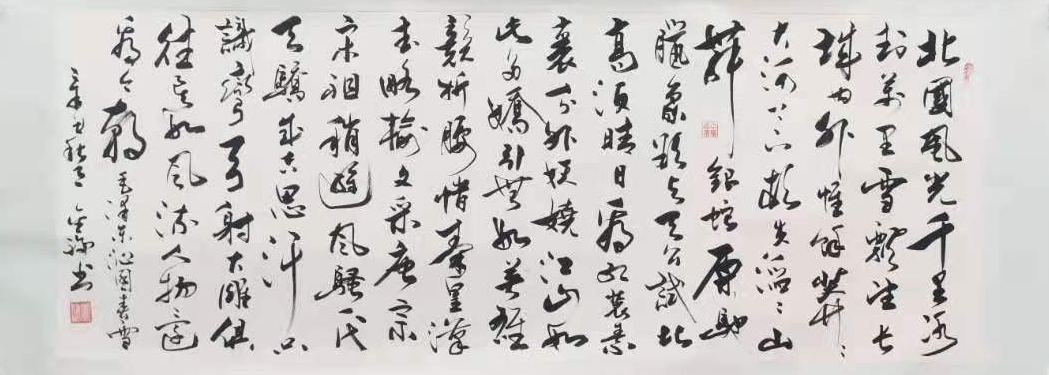 北國風光千里冰
封萬里雪飄望長
城内外惟餘莽〻
大河上下頓失滔〻山
舞銀蛇原馳
臘象欲与天公試比
高須晴日看紅裝素
裹分外妖嬈江山如
此多嬌引無數英雄
競折腰惜秦皇漢
武略輸文采唐宗
宋祖稍遜風騷一代
天驕成吉思汗只
識彎弓射大雕俱
往矣數風流人物還
看今朝 毛澤東沁園春雪
辛丑秋月 书